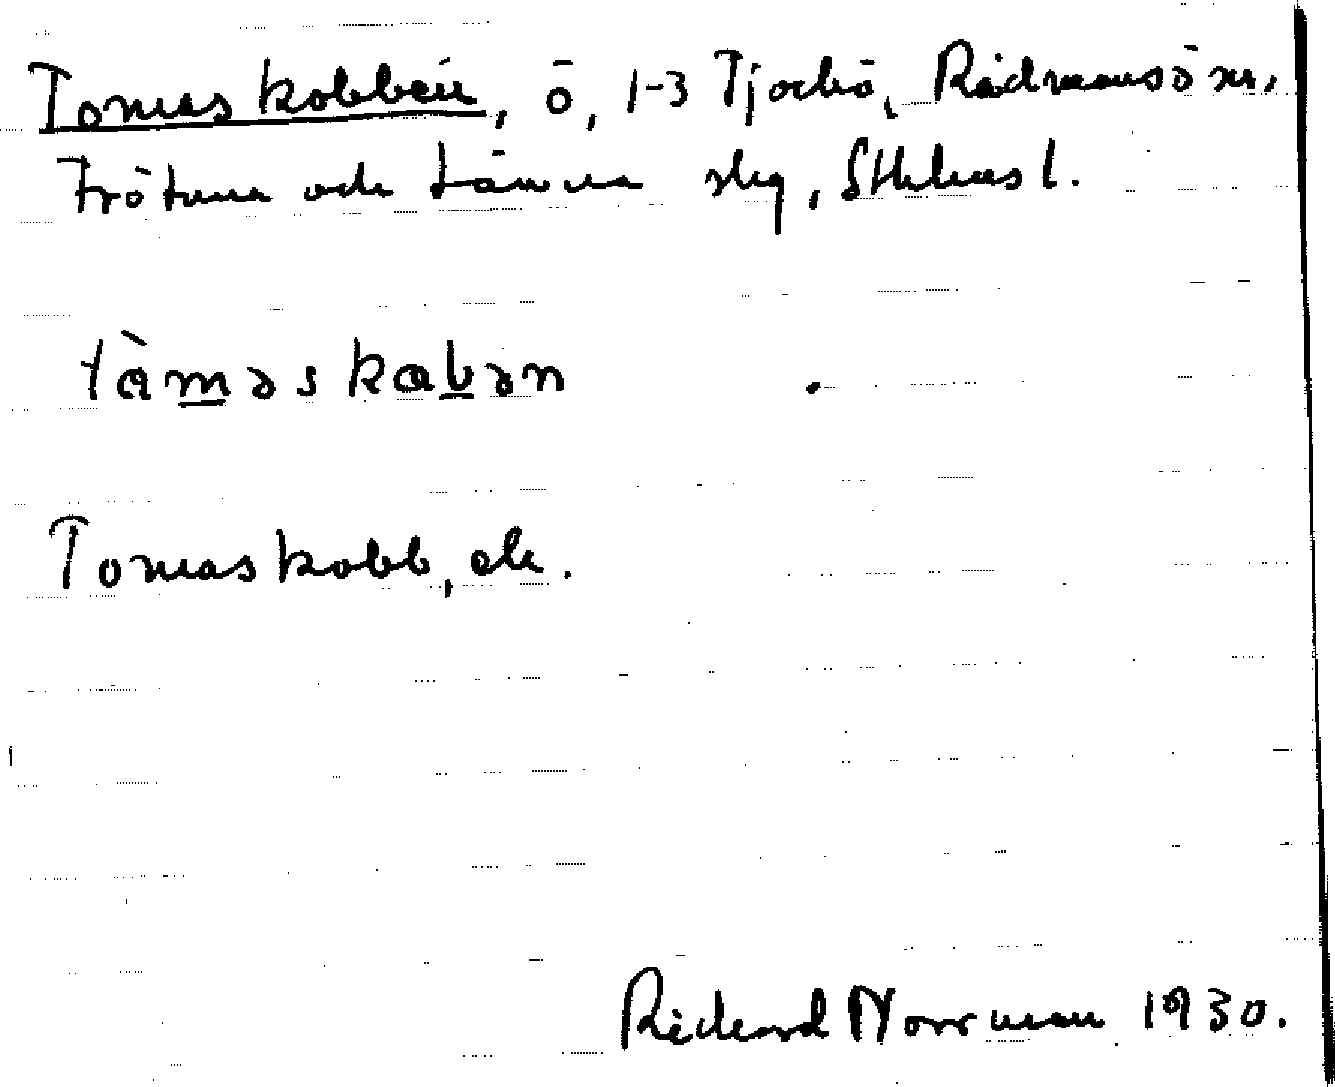 Tomaskobben, ö, 1-3 Tjockö, Rådmansö sn,
Frötuna och Länna skg, Sthlms l.
tòmasko̲b̲ən
Tomaskobb, ek.
Rickard Norrman 1930.